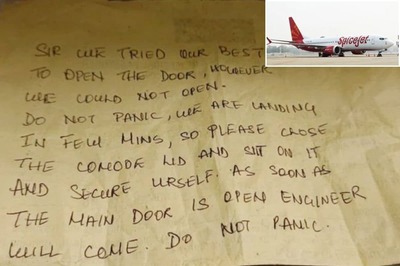 SIR WE TRIED OUR BEST
TO OPEN THE DOOR, HOWEVER
WE COULD NOT OPEN.
DO NOT PANIC, WE ARE LANDING
IN FEW MINS, SO PLEASE CLOSE
THE COMODE LID AND SIT ON IT
AND SECURE URSELF. AS SOON AS
THE MAIN DOOR IS OPEN ENGINEER
WILL COME. DO NOT PANIC.
SpiceJet